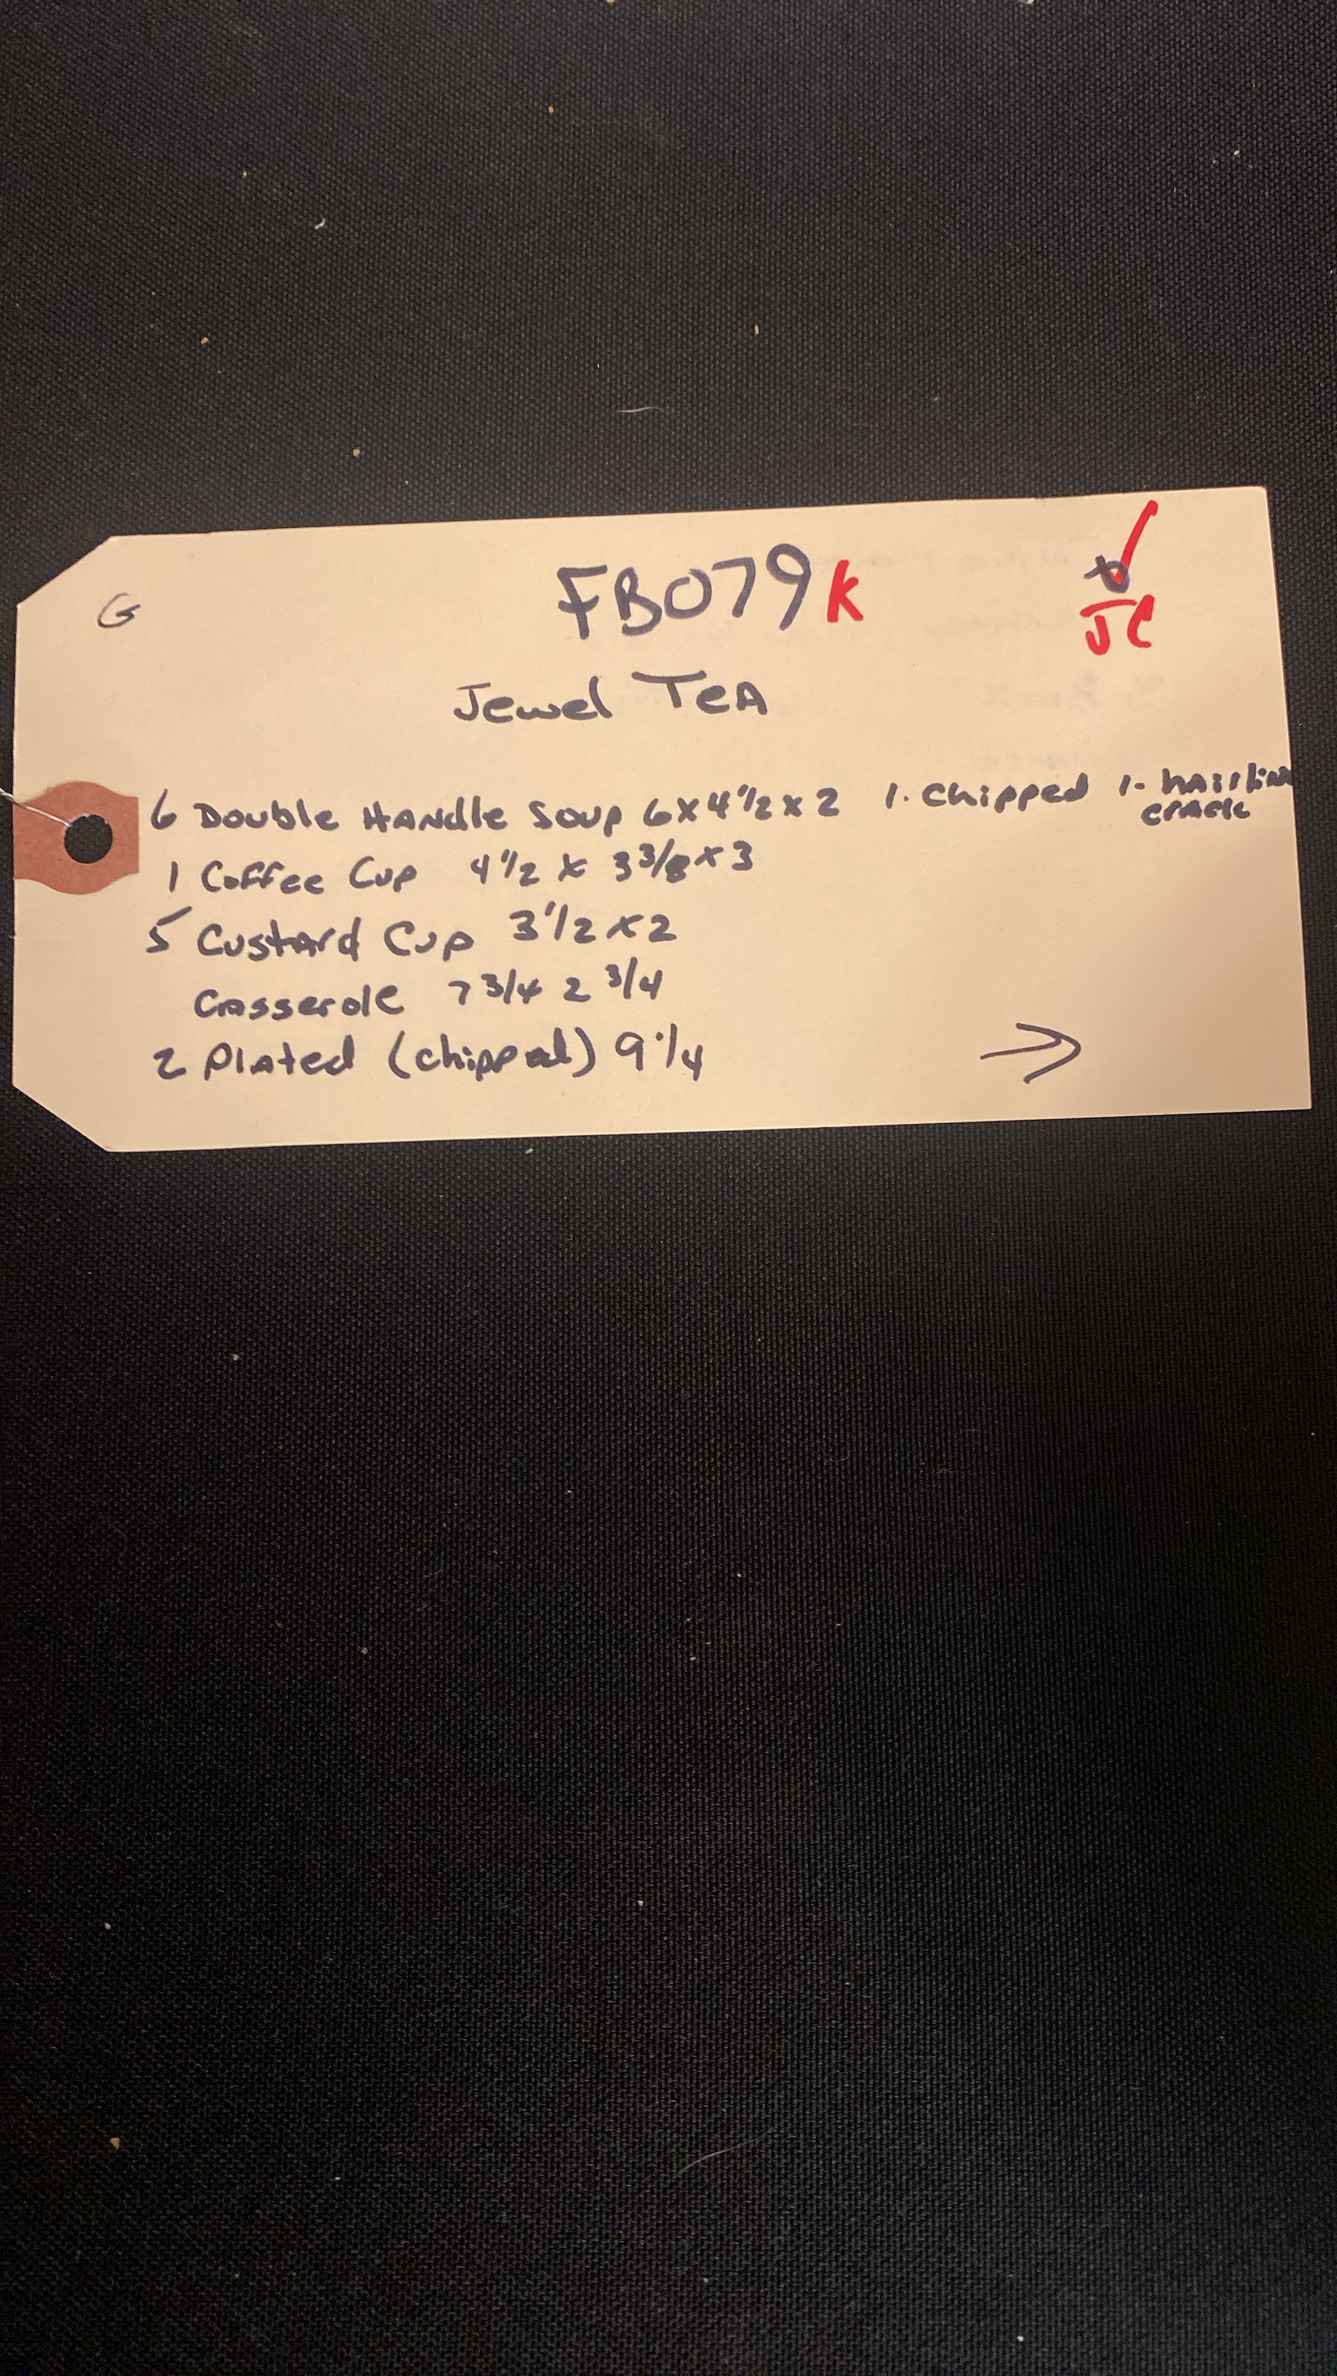 G
FB079K
JC
Jewel TeA
6 Double Handle Soup 6x4 1/2 x 2 1. Chipped 1- hairline crack
1 Coffee Cup 4 1/2 x 3 3/8 x 3
5 Custard Cup 3 1/2 x 2
Casserole 7 3/4 2 3/4
2 Plated (chipped) 9 1/4